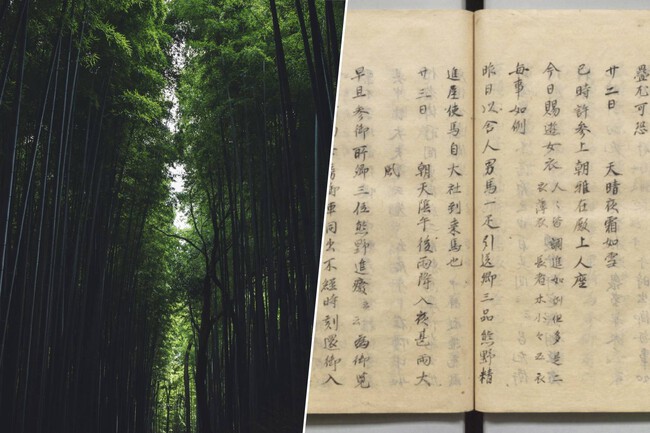 尤可恐
廿二日 天晴夜霜如雪
巳時許参上朝雅在殿上人座
今日賜遊女衣 人々皆調進如例但多是二
衣薄衣 小々五衣
毎事如例
昨日以舎人男馬一疋引送卿三品熊野精
進屋使馬自大社到来馬也
廿三日 朝天陰午後雨降入夜甚雨大
風
早旦参御所卿三位熊野進發云云為御覧
御車同出不經時刻還御入